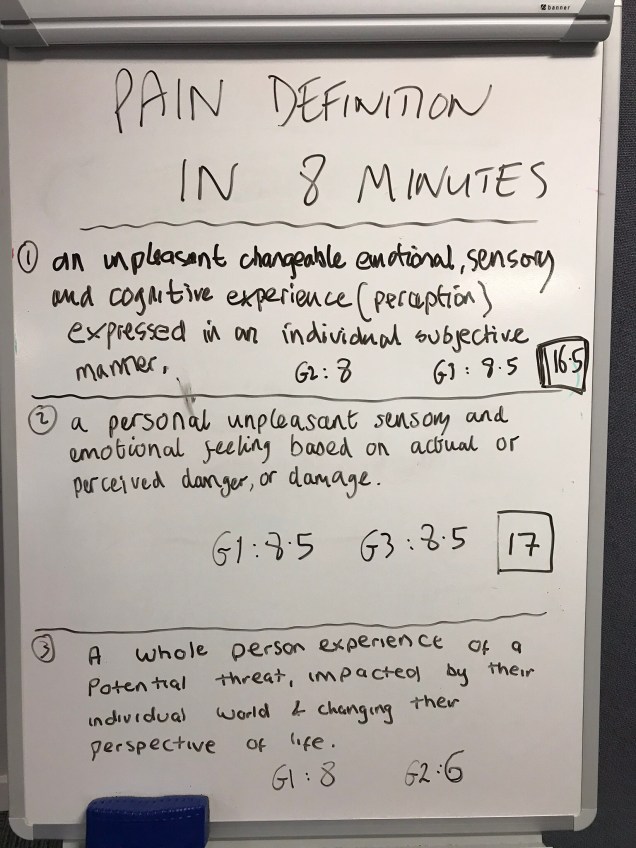 banner
PAIN DEFINITION
IN 8 MINUTES
① an unpleasant changeable emotional, sensory
and cognitive experience (perception)
expressed in an individual subjective
manner.
G2: 8 G3: 8.5 16.5
② a personal unpleasant sensory and
emotional feeling based on actual or
perceived danger, or damage.
G1: 8.5 G3: 8.5 17
③ A whole person experience of a
Potential threat, impacted by their
individual world & changing their
perspective of life.
G1: 8 G2: 6